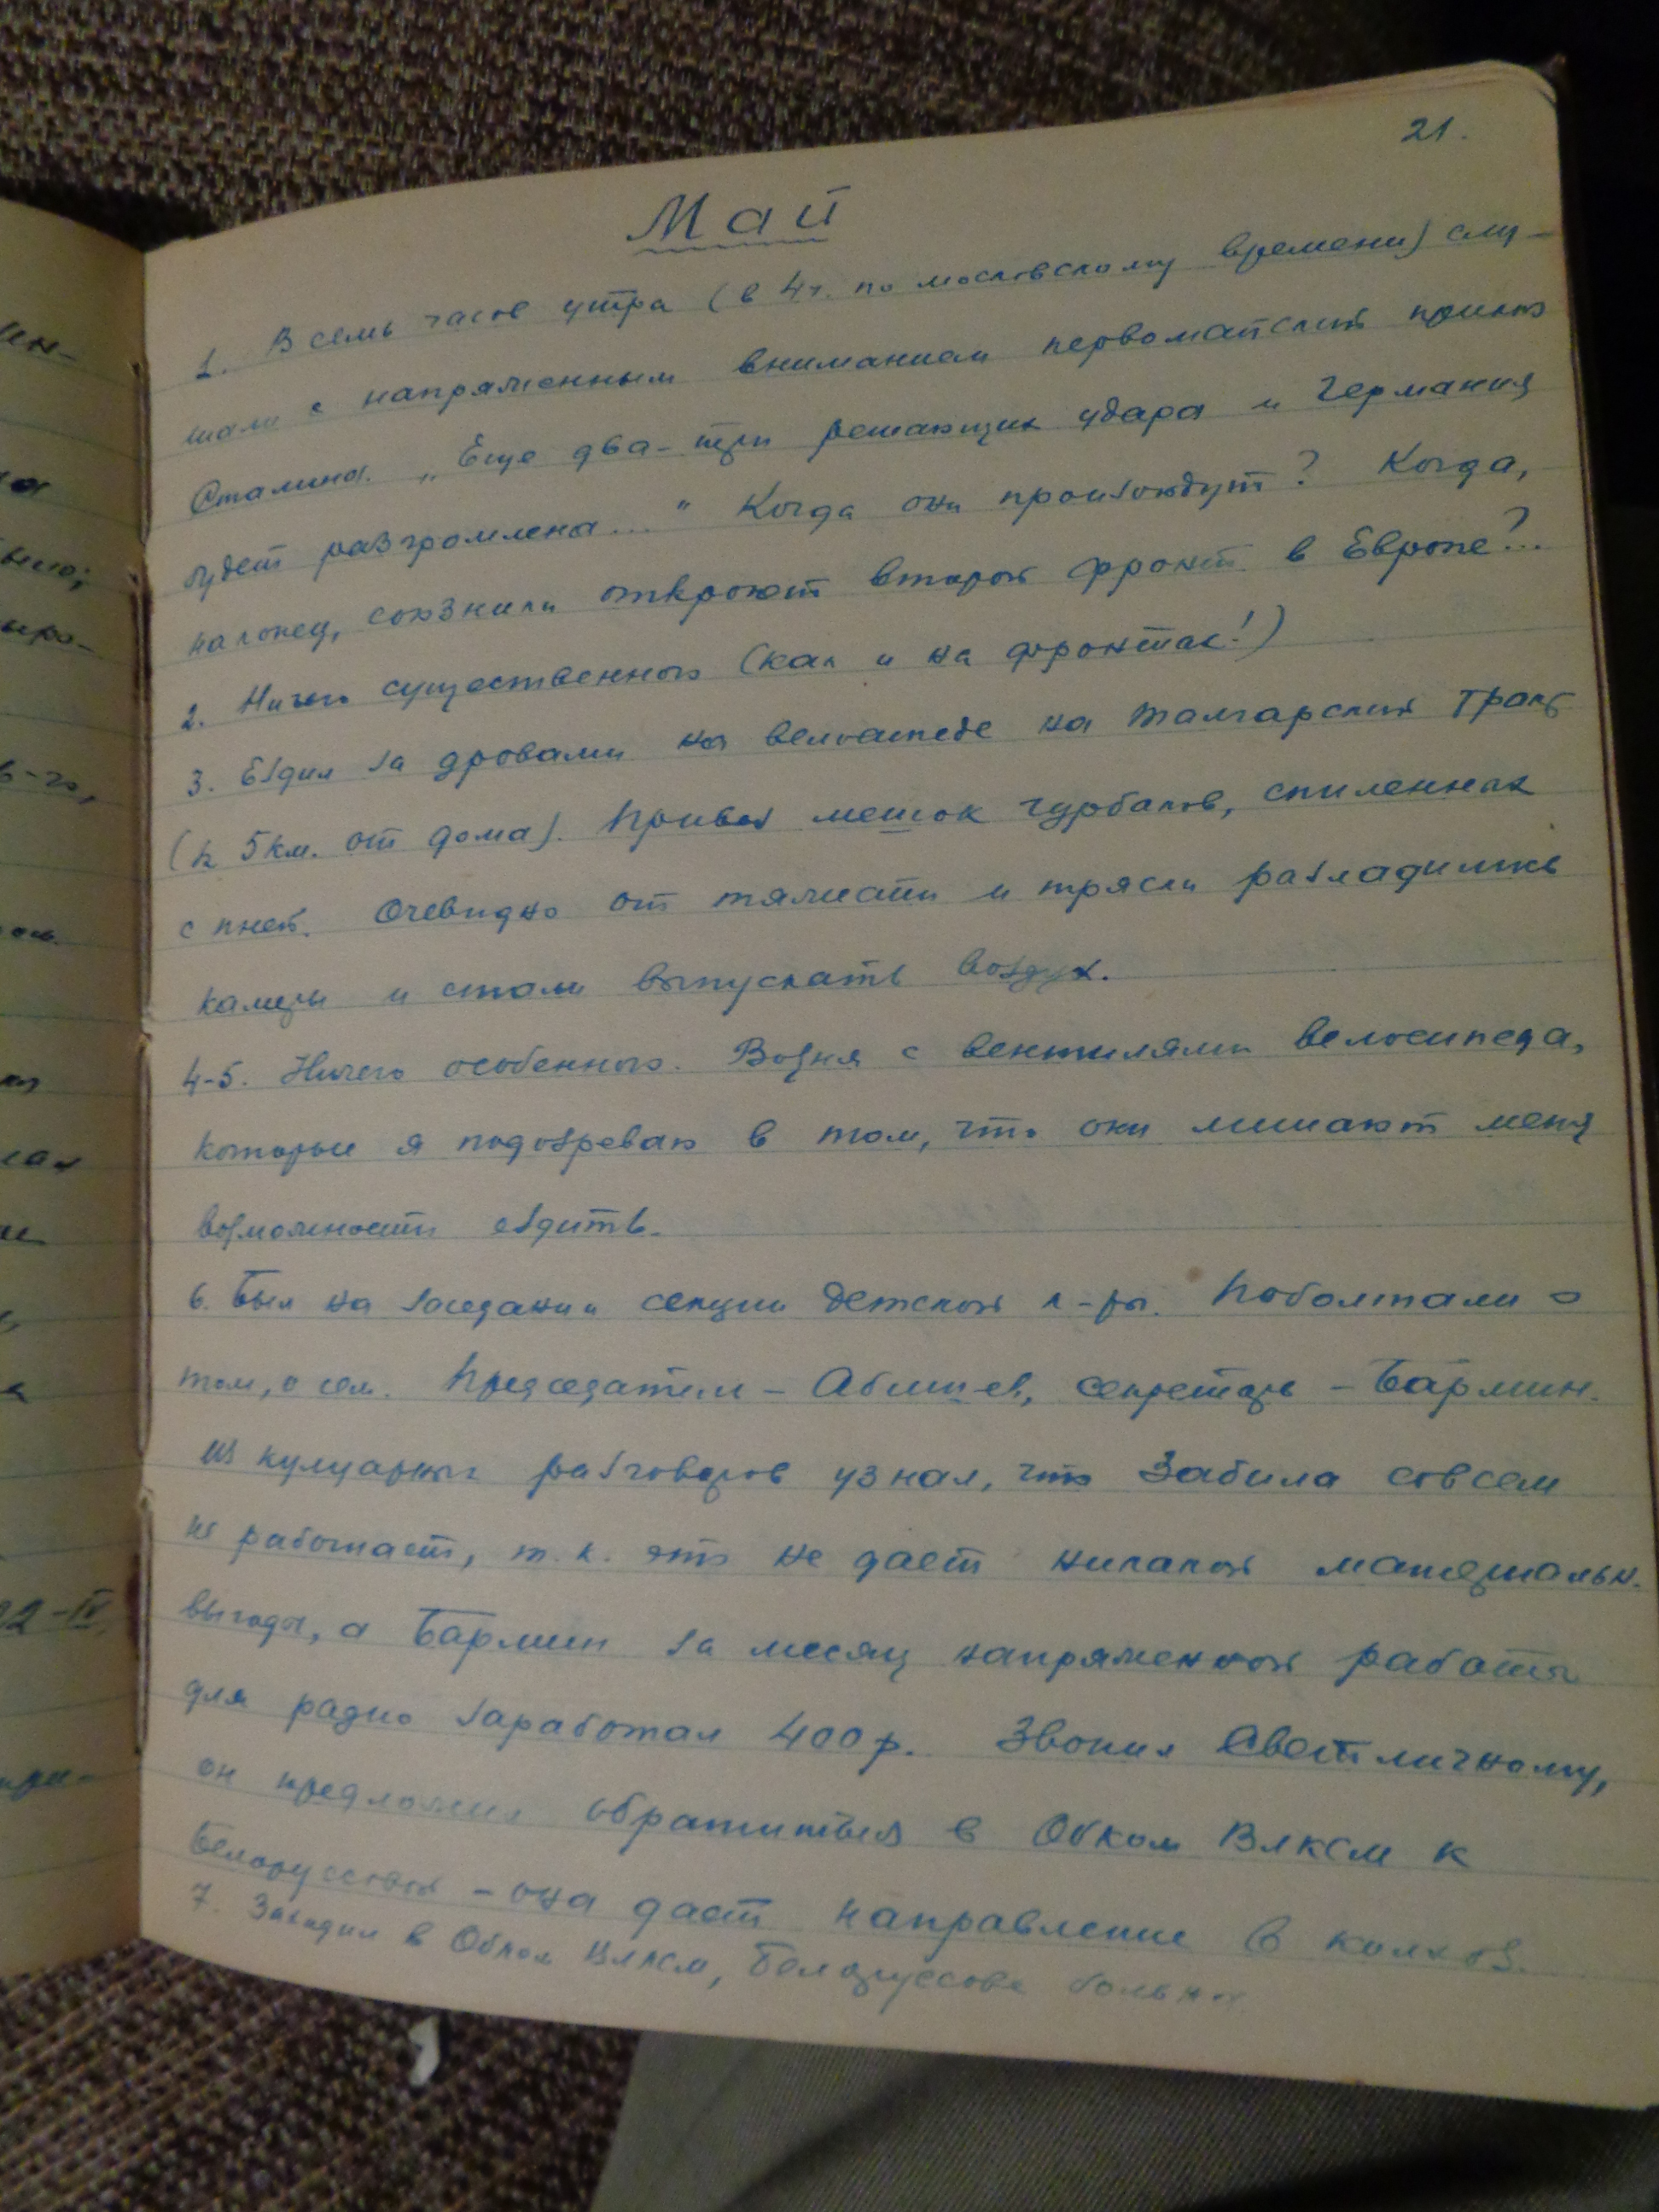 21.
Май
1. В семь часов утра (в 4ч. по московскому времени) слу-
шали с напряженным вниманием первомайский приказ
Сталина. „Еще два-три решающих удара и Германия
будет разгромлена..." Когда они произойдут? Когда,
наконец, союзники откроют второй фронт в Европе?..
2. Ничего существенного (как и на фронтах!)
3. Ездил за дровами на велосипеде на Талгарский тракт
(в 5км. от дома). Привез мешок чурбаков, спиленных
с пней. Очевидно от тяжести и тряски разладились
камеры и стали выпускать воздух.
4-5. Ничего особенного. Возня с вентилями велосипеда,
которые я подозреваю в том, что они лишают меня
возможности ездить.
6. Был на заседании секции детской л-ры. Поболтали о
том, о сем. Председатель – Абишев, секретарь – Бармин.
Из кулуарных разговоров узнал, что Забила совсем
не работает, т.к. это не дает никакой материальн.
выгоды, а Бармин за месяц напряженной работы
для радио заработал 400р. Звонил Светличному,
он предложил обратиться в Обком ВЛКСМ к
Белоруссовой – она даст направление в колхоз.
7. Заходил в Обком ВЛКСМ, Белоруссова больна.
ин-
было;
6-го,
22-IV,
при-